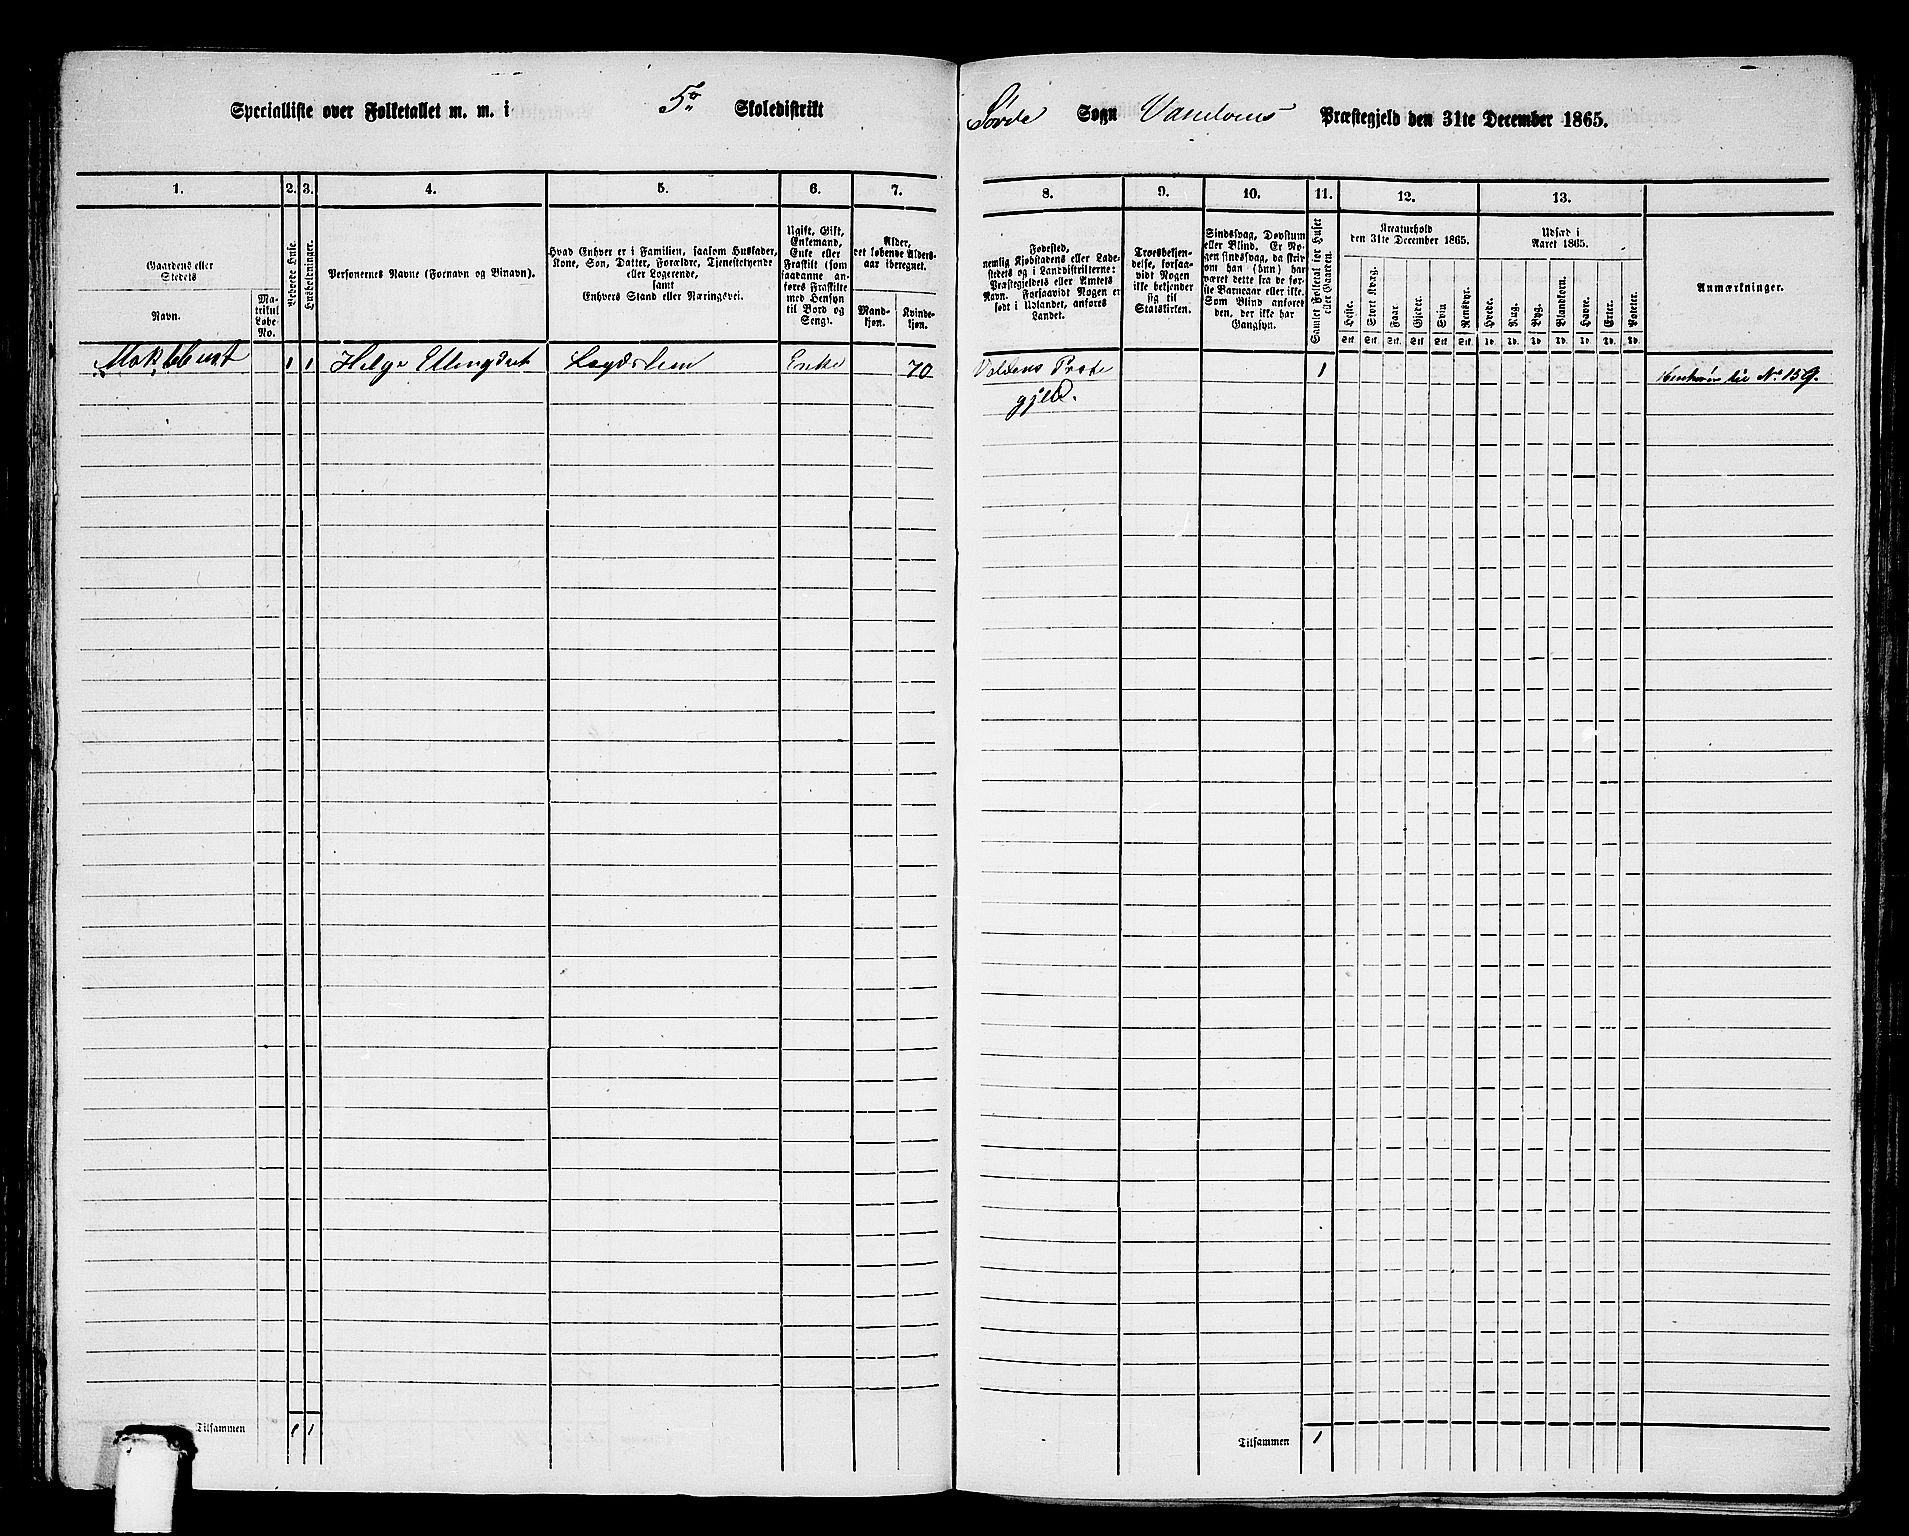 Specialliste over Folketallet m. m. i 5te Skoledistrikt Sørde Sogn Vandvens Præstegjeld den 31te December 1865.
1. 2. 3. 4. 5. 6. 7. 8. 9. 10. 11. 12. 13.
Gaardens eller Stedets
Navn.
Matrikul Løbe-No.
Beboede Huse.
Husholdninger.
Personernes Navne (Fornavn og Binavn).
Hvad Enhver er i Familien, saasom Husfader,
Kone, Søn, Datter, Forældre, Tjenestetyende
eller Logerende,
samt
Enhvers Stand eller Næringsvei.
Ugift, Gift,
Enkemand,
Enke eller
Fraskilt (som
saadanne an-
føres Fraskilte
med Hensyn
til Bord og
Seng).
Alder,
det løbende Alders-
aar iberegnet.
Mand-
kjøn.
Kvinde-
kjøn.
Fødested,
nemlig Kjøbstadens eller Lade-
stedets og i Landdistrikterne:
Præstegjeldets eller Amtets
Navn. Forsaavidt Nogen er
født i Udlandet, anføres
Landet.
Troesbekjen-
delse, forsaa-
vidt Nogen
ikke bekjender
sig til
Statskirken.
Sindssvag, Døvstum
eller Blind. Er No-
gen sindssvag, da skriv
om han (hun) har
været dette fra de før-
ste Barneaar eller ikke.
Som Blind anføres
den, der ikke har
Gangsyn.
Samlet Folketal for Huset
eller Gaarden.
Kreaturhold
den 31te December 1865.
Heste. Stort Kvæg. Faar. Gjeder. Svin. Rensdyr.
Stk. Stk. Stk. Stk. Stk. Stk.
Udsæd i
Aaret 1865.
Hvede. Rug. Byg. Blandkorn. Havre. Erter. Poteter.
Td. Td. Td. Td. Td. Td. Td.
Anmærkninger.
1 1 Helge Ellingsdat Lægdslem Enke 70 1 No 159.
gjeld.
Tilsammen 1 1
Tilsammen 1